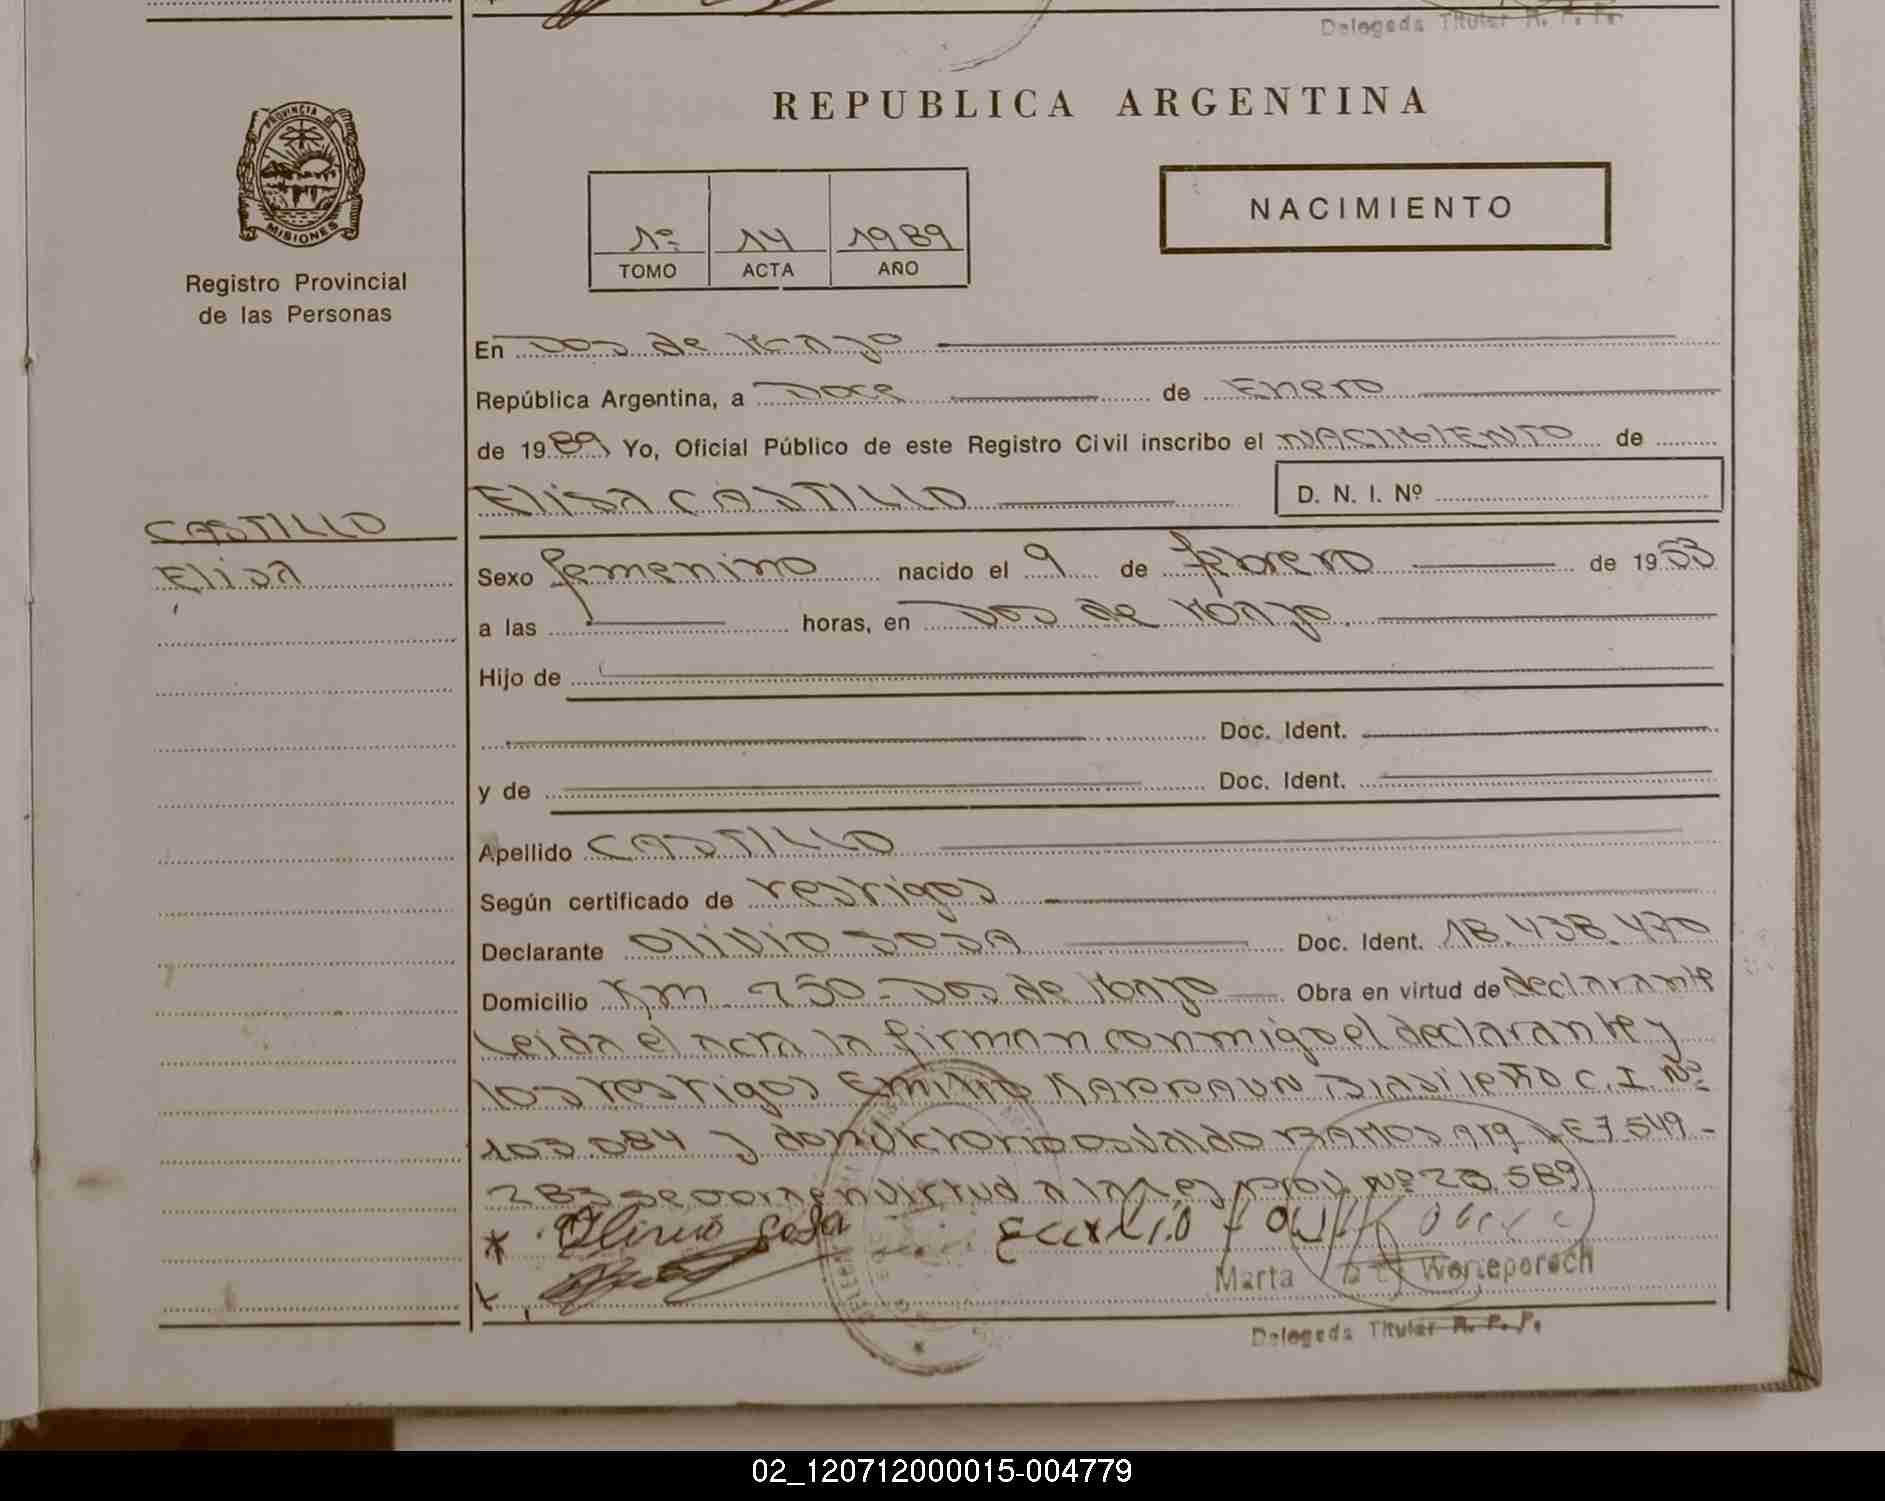 Delegada Titular R. P. P.
REPUBLICA ARGENTINA
PROVINCIA DE
MISIONES
Registro Provincial
de las Personas
1º 14 1989
TOMO ACTA AÑO
NACIMIENTO
En Dos de Mayo
República Argentina, a Doce de Enero
de 1989 Yo, Oficial Público de este Registro Civil inscribo el NACIMIENTO de
Elisa CASTILLO D. N. I. Nº
CASTILLO
Elisa
Sexo femenino nacido el 9 de febrero de 1953
a las horas, en Dos de Mayo.
Hijo de
Doc. Ident.
y de Doc. Ident.
Apellido CASTILLO
Según certificado de testigos
Declarante Olivio SOSA Doc. Ident. 18.438.470
Domicilio Km 250 - Dos de Mayo Obra en virtud de declarante
Leida el acta la firman conmigo el declarante y
los testigos Emilio Brasileño C.I. Nº
103.084 y don Victorio Osvaldo RAMOS Arg LE 7.549-
283 se en virtud a la Ley prov. Nº 23.589
Olivio Sosa
Marta
Delegada Titular R. P. P.
02_120712000015-004779